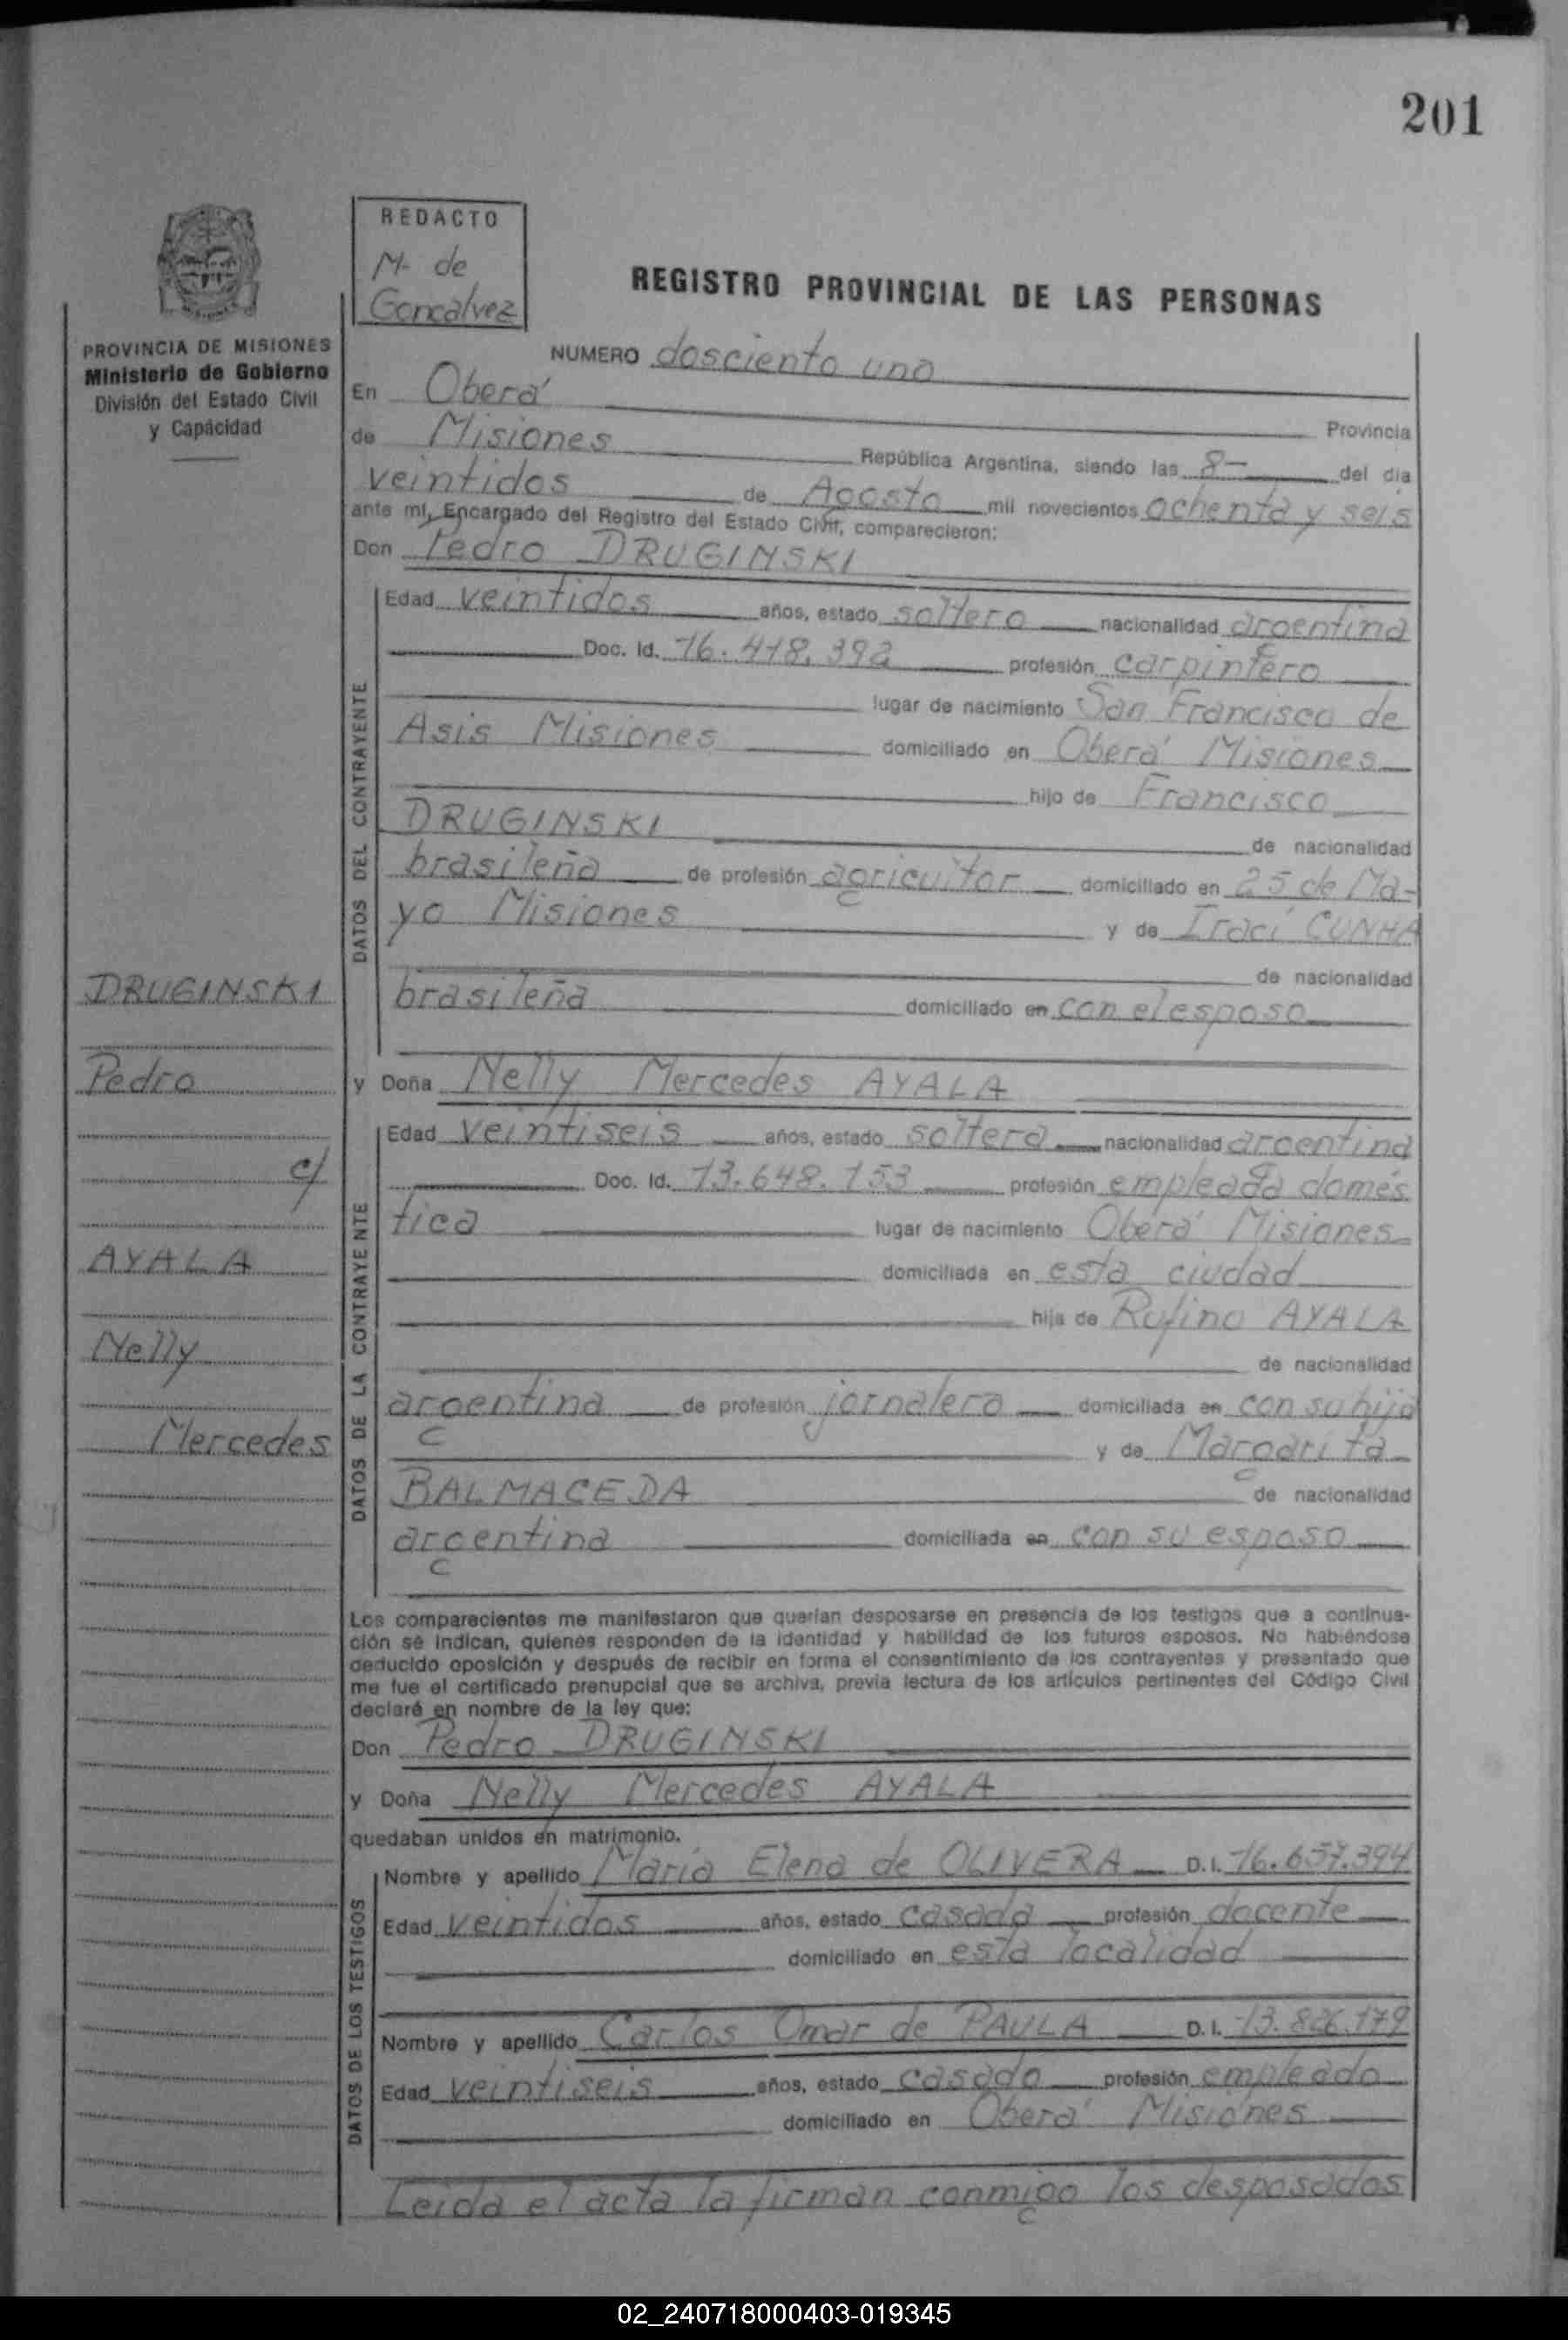 201
REDACTO
M. de
Goncalvez
REGISTRO PROVINCIAL DE LAS PERSONAS
PROVINCIA DE MISIONES
Ministerio de Gobierno
División del Estado Civil
y Capacidad
NUMERO dosciento uno
En Oberá Provincia
de Misiones República Argentina, siendo las 8- del día
veintidos de Agosto mil novecientos ochenta y seis
ante mí, Encargado del Registro del Estado Civil, comparecieron:
Don Pedro DRUGINSKI
DATOS DEL CONTRAYENTE
Edad veintidos años, estado soltero nacionalidad argentina
Doc. Id. 16.418.392 profesión carpintero
lugar de nacimiento San Francisco de
Asis Misiones domiciliado en Oberá Misiones
hijo de Francisco
DRUGINSKI de nacionalidad
brasileña de profesión agricultor domiciliado en 25 de Ma-
yo Misiones y de Iraci CUNHA
de nacionalidad
brasileña domiciliado en con el esposo
DRUGINSKI
Pedro
c/
AYALA
Nelly
Mercedes
y Doña Nelly Mercedes AYALA
DATOS DE LA CONTRAYENTE
Edad veintiseis años, estado soltera nacionalidad argentina
Doc. Id. 13.648.153 profesión empleada domés
tica lugar de nacimiento Oberá Misiones
domiciliada en esta ciudad
hija de Rufino AYALA
de nacionalidad
argentina de profesión jornalero domiciliada en con su hija
y de Margarita
BALMACEDA de nacionalidad
argentina domiciliada en con su esposo
Los comparecientes me manifestaron que querían desposarse en presencia de los testigos que a continua-
ción se indican, quienes responden de la identidad y habilidad de los futuros esposos. No habiéndose
deducido oposición y después de recibir en forma el consentimiento de los contrayentes y presentado que
me fue el certificado prenupcial que se archiva, previa lectura de los artículos pertinentes del Código Civil
declaré en nombre de la ley que:
Don Pedro DRUGINSKI
y Doña Nelly Mercedes AYALA
quedaban unidos en matrimonio.
DATOS DE LOS TESTIGOS
Nombre y apellido María Elena de OLIVERA D.I. 16.657.394
Edad veintidos años, estado casada profesión docente
domiciliado en esta localidad
Nombre y apellido Carlos Omar de PAULA D.I. 13.826.179
Edad veintiseis años, estado casado profesión empleado
domiciliado en Oberá Misiones
Leida el acta la firman conmigo los desposados
02_240718000403-019345